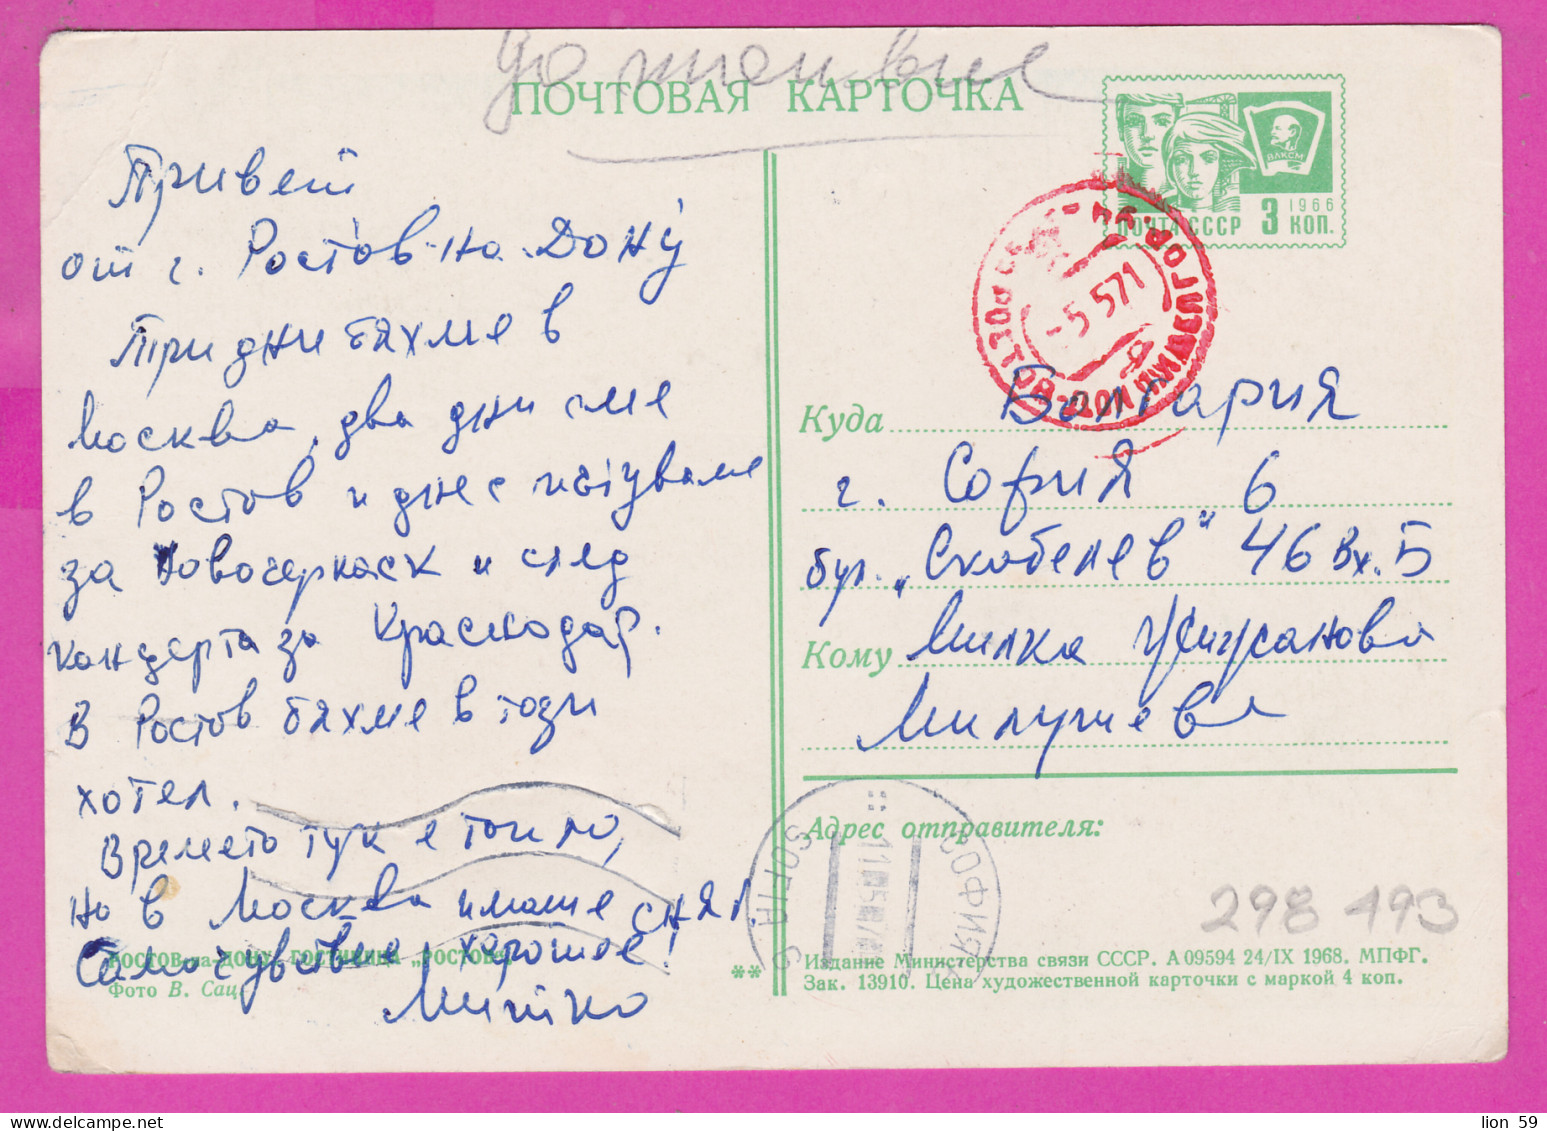 ПОЧТОВАЯ КАРТОЧКА
ВЛКСМ
1966
ПОЧТА СССР 3 КОП.
Привет
от г. Ростов-на-Дону
Три дни бяхме в
Москва, два дни сме
в Ростов и днес пътуваме
за Новочеркаск и след
концерта за Краснодар.
В Ростов бяхме в този
хотел.
Времето тук е топло,
но в Москва имаше сняг.
Самочувствие хорошое!
Митко
РОСТОВ-на-ДОНУ. ГОСТИНИЦА „РОСТОВ".
Фото В. Сац.
-5 571
Куда Болгария
г. София 6
бул. „Скобелев" 46 Вх. Б
Кому Милка
Милушева
Адрес отправителя:
СОФИЯ
SOFIA
298 193
** Издание Министерства связи СССР. А 09594 24/IX 1968. МПФГ.
Зак. 13910. Цена художественной карточки с маркой 4 коп.
lion 59